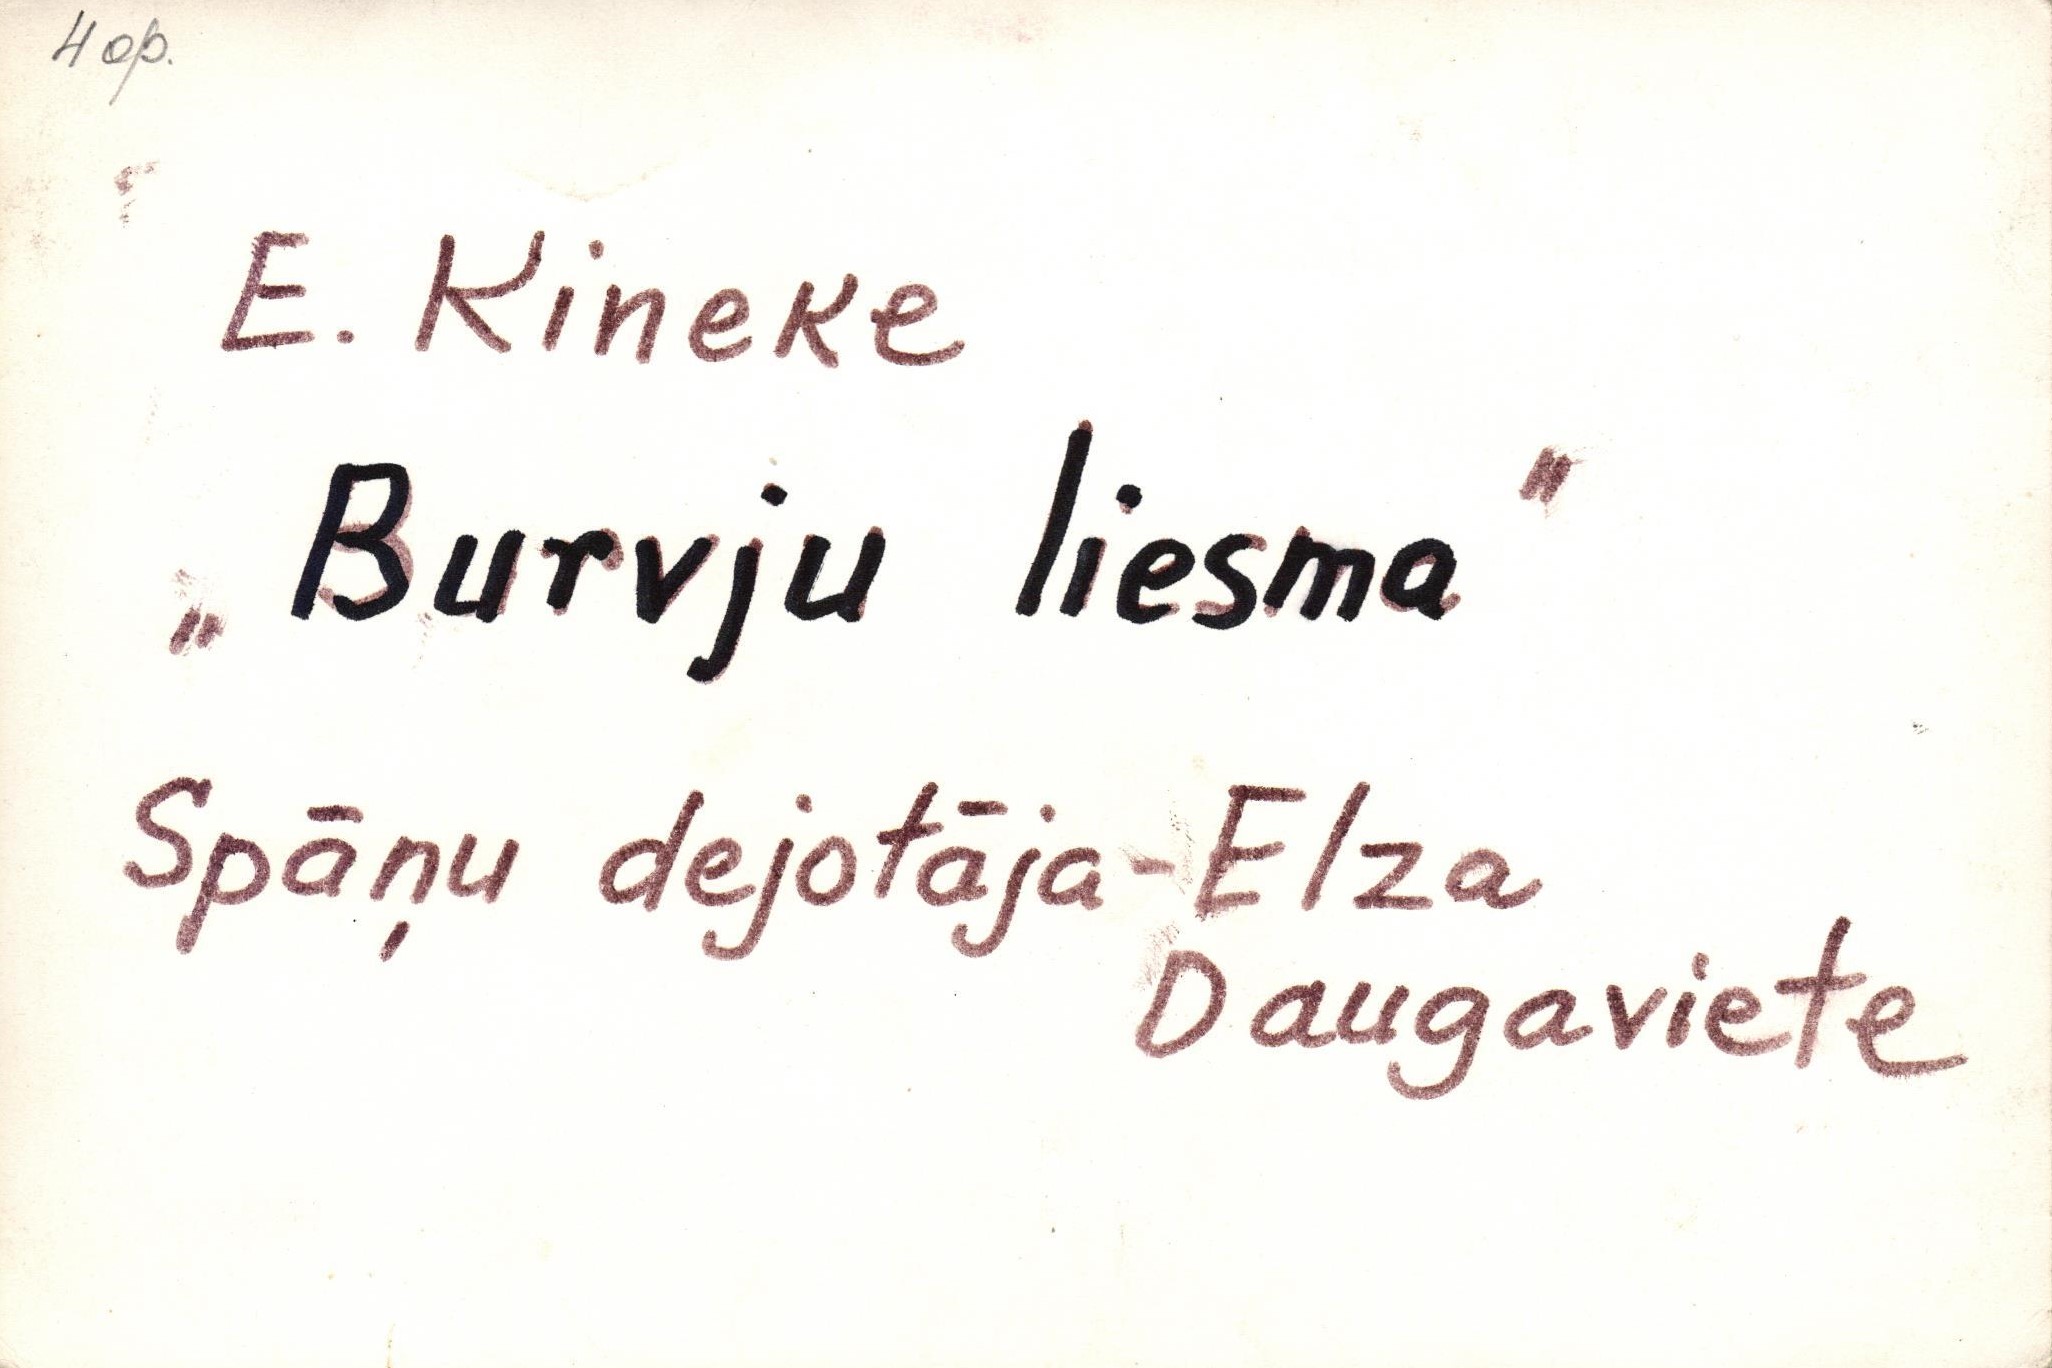 4 op.
E. Kineke
„Burvju liesma"
Spāņu dejotāja - Elza
Daugaviete